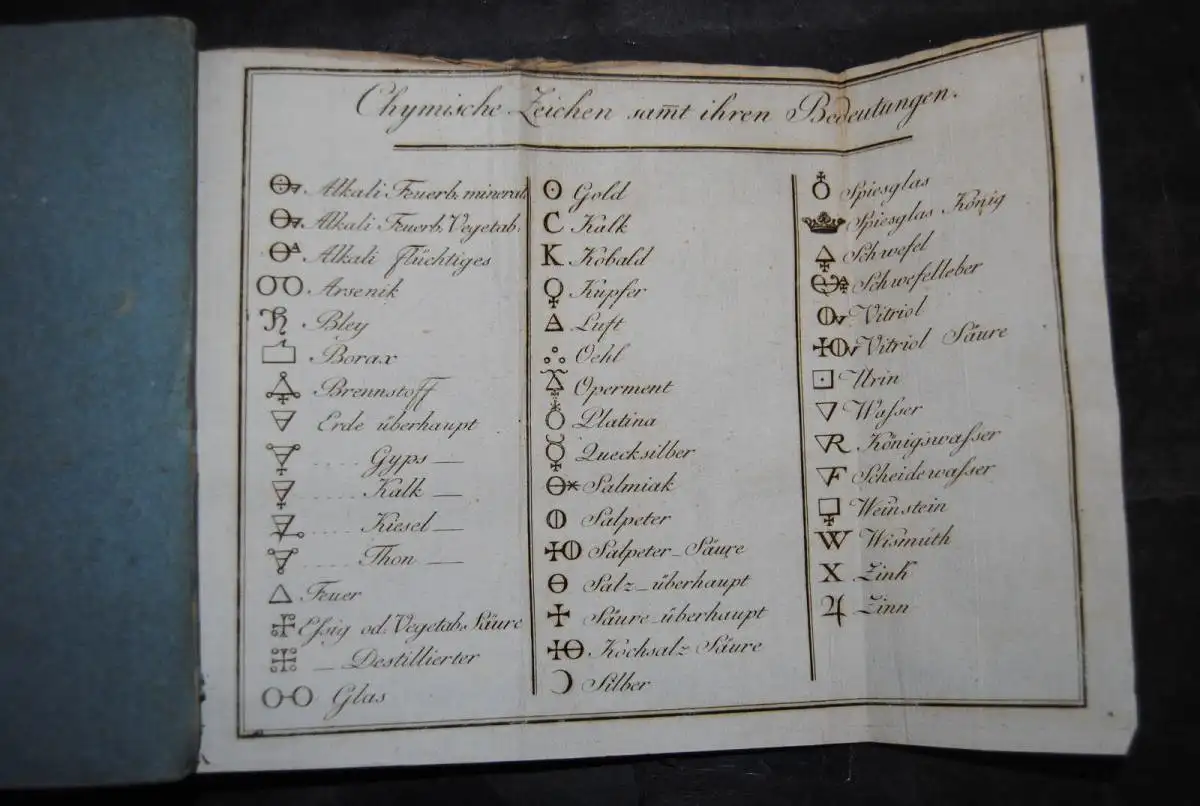 Chymische Zeichen sam̅t ihren Bedeutungen.
Alkali Feuerb. mineral.
Alkali Feuerb. Vegetab.
Alkali flüchtiges
Arsenik
Bley
Borax
Brennstoff
Erde überhaupt
.... Gyps —
.... Kalk —
.... Kiesel —
.... Thon —
Feuer
Eſsig od. Vegetab. Säure
— Destillierter
Glas
Gold
C Kalk
K Kobald
Kupfer
Luft
Oehl
Operment
Platina
Quecksilber
Salmiak
Salpeter
Salpeter-Säure
Salz-überhaupt
Säure-überhaupt
Kochsalz Säure
Silber
Spiesglas
Spiesglas König
Schwefel
Schwefelleber
Vitriol
Vitriol Säure
Urin
Waſser
Königswaſser
Scheidewaſser
Weinstein
W Wismuth
X Zink
Zinn